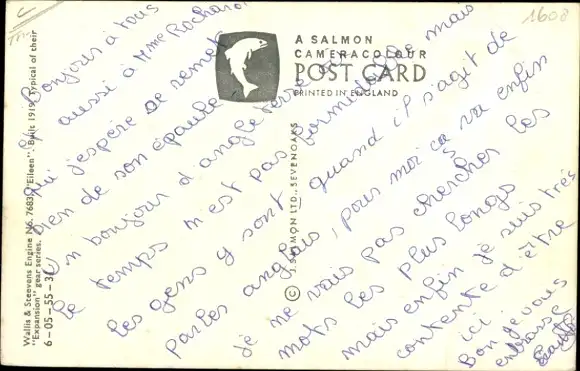 1608
A SALMON
CAMERACOLOUR
POST CARD
PRINTED IN ENGLAND
© J. SALMON LTD., SEVENOAKS
Wallis & Steevens Engine No. 7683 "Eileen". Built 1919. Typical of their
"Expansion" gear series.
6-05-55-3
Bonjour à tous
et aussi à Mme Rochard
qui j'espère se remet
bien de son épaule.
Un bonjour d'angleterre où
le temps n'est pas formidable mais
les gens y sont quand il s'agit de
parler anglais, pour moi ça va enfin
je ne vais pas chercher les
mots les plus longs
mais enfin je suis très
contente d'être
ici.
Bon je vous
embrasse